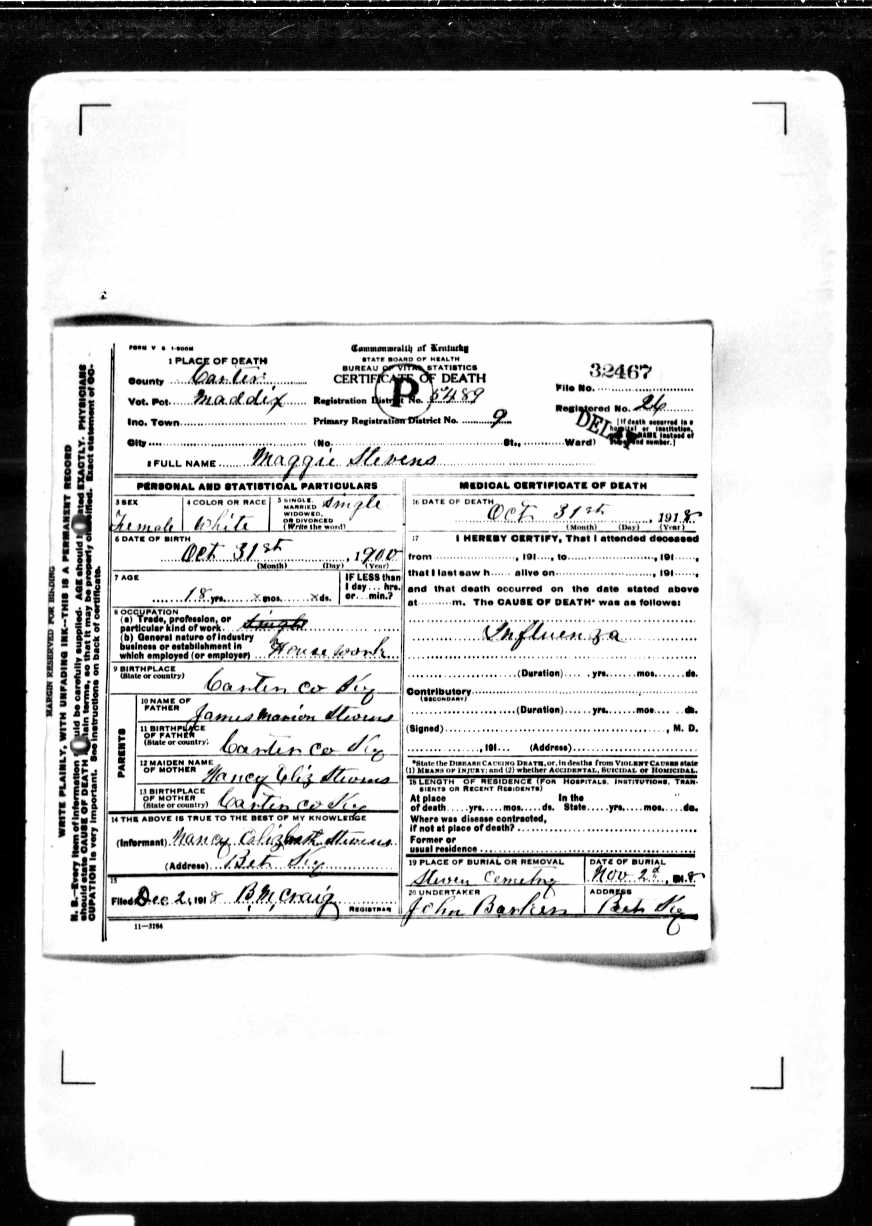 FORM V S 1-500M
Commonwealth of Kentucky
STATE BOARD OF HEALTH
BUREAU OF VITAL STATISTICS
CERTIFICATE OF DEATH
P
1 PLACE OF DEATH
County Carter
Vot. Pct. Maddix
Inc. Town
City (No. St., Ward)
Registration District No. 5489
Primary Registration District No. 9
32467
File No.
Registered No. 26
[If death occurred in a hospital or institution, NAME instead of and number.]
2 FULL NAME Maggie Stevens
PERSONAL AND STATISTICAL PARTICULARS
3 SEX
Female
4 COLOR OR RACE
White
5 SINGLE, MARRIED WIDOWED, OR DIVORCED (Write the word)
Single
6 DATE OF BIRTH
Oct 31st, 1900
(Month) (Day) (Year)
7 AGE
18 yrs. x mos. x ds.
IF LESS than 1 day... hrs. or... min.?
8 OCCUPATION
(a) Trade, profession, or particular kind of work. Single
(b) General nature of industry business or establishment in which employed (or employer) House work
9 BIRTHPLACE
(State or country)
Carter co Ky
PARENTS
10 NAME OF FATHER
James Marion Stevens
11 BIRTHPLACE OF FATHER
(State or country)
Carter co Ky
12 MAIDEN NAME OF MOTHER
Nancy Eliz Stevens
13 BIRTHPLACE OF MOTHER
(State or country)
Carter co Ky
14 THE ABOVE IS TRUE TO THE BEST OF MY KNOWLEDGE
(Informant) Nancy Elizabeth Stevens
(Address) Bet Ky
15
Filed Dec 2, 1918 B. M. Craig
REGISTRAR
11-3184
MEDICAL CERTIFICATE OF DEATH
16 DATE OF DEATH
Oct 31st, 1918
(Month) (Day) (Year)
17 I HEREBY CERTIFY, That I attended deceased
from , 191 , to , 191 ,
that I last saw h alive on , 191 ,
and that death occurred on the date stated above
at m. The CAUSE OF DEATH* was as follows:
Influenza
(Duration) yrs. mos. ds.
Contributory
(SECONDARY)
(Duration) yrs. mos. ds.
(Signed) , M. D.
, 191 (Address)
*State the DISEASE CAUSING DEATH, or, in deaths from VIOLENT CAUSES state
(1) MEANS OF INJURY; and (2) whether ACCIDENTAL, SUICIDAL or HOMICIDAL.
18 LENGTH OF RESIDENCE (FOR HOSPITALS, INSTITUTIONS, TRANSIENTS OR RECENT RESIDENTS)
At place of death yrs. mos. ds. In the State yrs. mos. ds.
Where was disease contracted,
if not at place of death?
Former or
usual residence
19 PLACE OF BURIAL OR REMOVAL
Steven Cemetry
DATE OF BURIAL
Nov 2d, 1918
20 UNDERTAKER
John Barker
ADDRESS
Bet Ky
MARGIN RESERVED FOR BINDING
WRITE PLAINLY, WITH UNFADING INK—THIS IS A PERMANENT RECORD
N. B.—Every item of information should be carefully supplied. AGE should be stated EXACTLY. PHYSICIANS
should state CAUSE OF DEATH in plain terms, so that it may be properly classified. Exact statement of OC-
CUPATION is very important. See instructions on back of certificate.